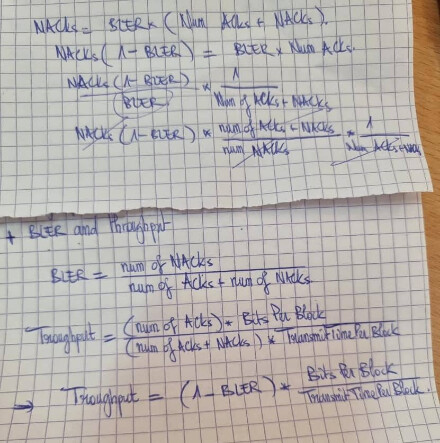 NACKs = BLER * (Num Acks + NACKs).
NACKs (1 - BLER) = BLER * Num Acks.
NACKs (1 - BLER) / (BLER) * 1 / Num of Acks + NACKs
NACKs (1 - BLER) * num of Acks + NACKs / num NACKs * 1 / Num Acks + NACKs
+ BLER and throughput
BLER = num of NACKs / num of Acks + num of NACKs.
Troughput = (num of Acks) * Bits Per Block / (num of Acks + NACKs) * TransmitTime Per Block
⇒ Troughput = (1 - BLER) * Bits Per Block / TransmitTime Per Block.